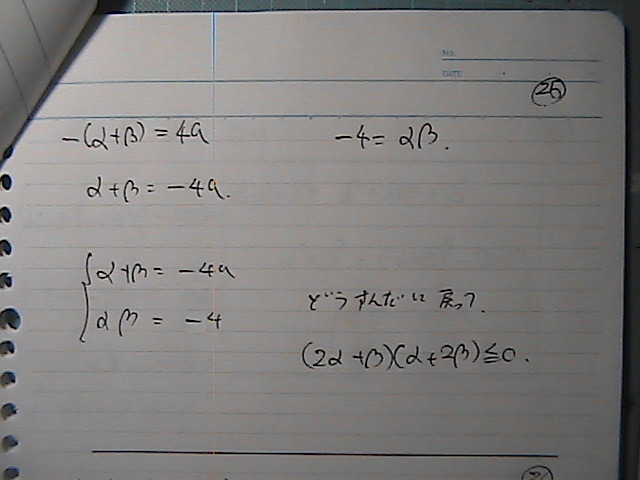 No.
DATE
25
-(α+β) = 4a
-4 = αβ.
α+β = -4a.
α+β = -4a
αβ = -4
どうすんだいに戻って.
(2α+β)(α+2β)≦0.